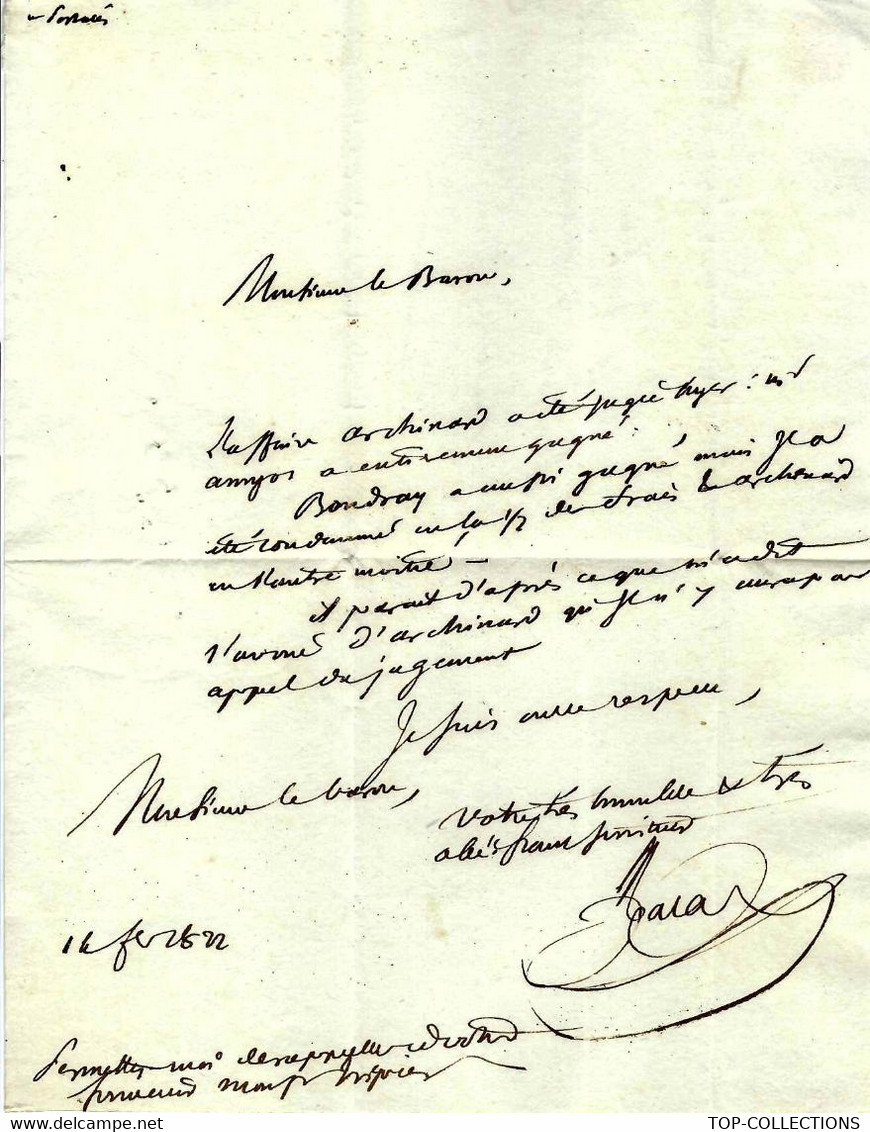 Monsieur le Baron,
L'affaire archinard a été jugée hyer : mr
amyos a entierement gagné.
Boudray a aussi gagné mais il a
été condamné en la 1/2 des frais & archinard
en l'autre moitié —
il parait d'après ce que m'a dit
l'avoué d'archinard qu'il n'y aura pas
appel du jugement
Je suis avec respect,
Monsieur le baron,
votre très humble & très
obéissant serviteur
14 fev 1822
Permettez moi de rappeller
TOP-COLLECTIONS